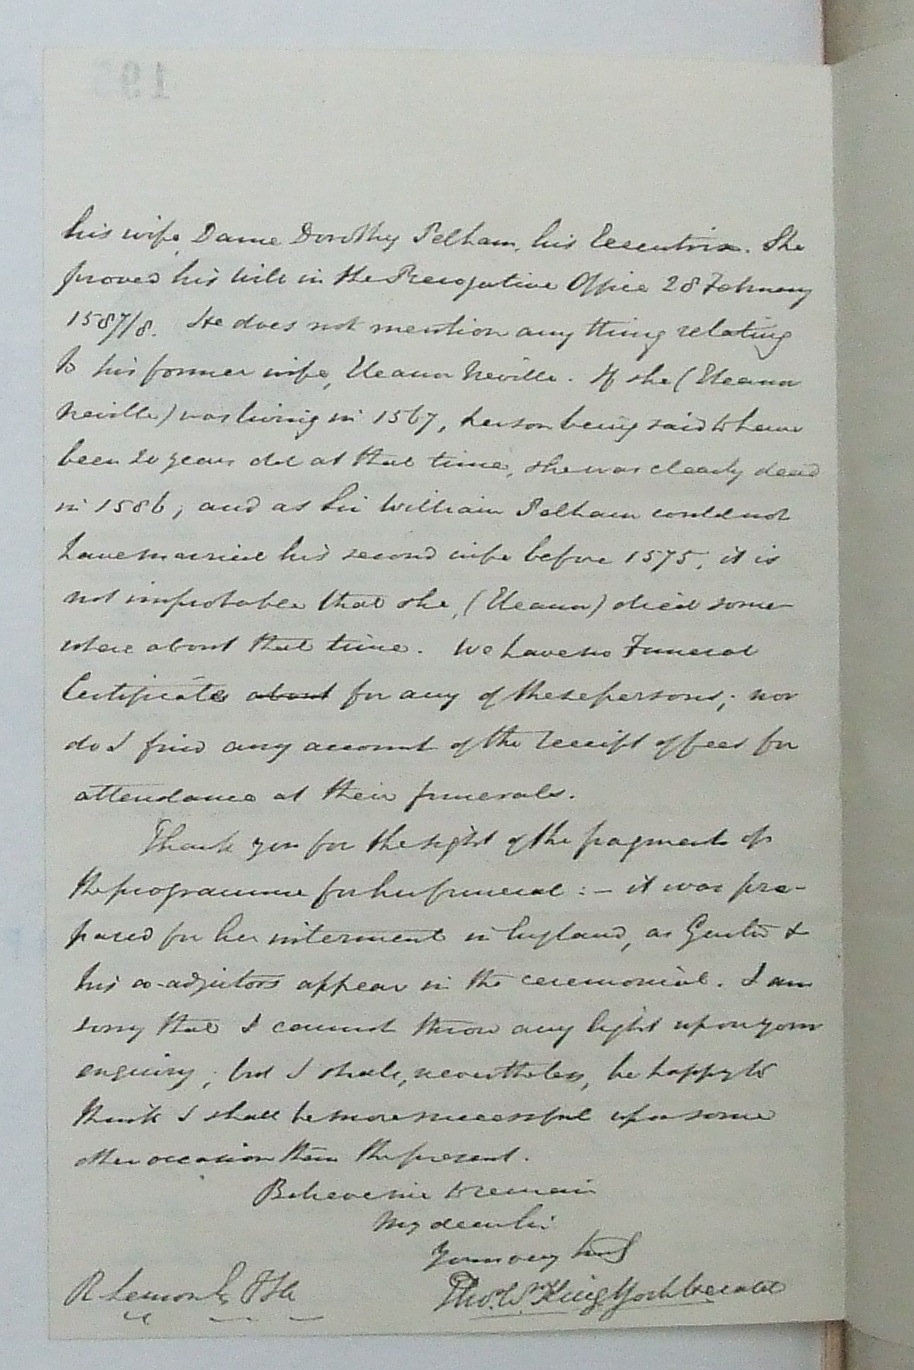 his wife, Dame Dorothy Pelham, his Executrix. She
proved his will in the Prerogative Office 28 February
1587/8. He does not mention any thing relating
to his former wife, Eleanor Neville. If she (Eleanor
Neville) was living in 1567, her son being said to have
been 20 years old at that time, she was clearly dead
in 1586; and as Sir William Pelham could not
have married his second wife before 1575, it is
not improbable that she, (Eleanor) died some-
where about that time. We have no Funeral
Certificates about for any of these persons; nor
do I find any account of the receipt of fees for
attendance at their funerals.
Thank you for the sight of the fragment of
the programme for her funeral: – it was pre-
pared for her interment in England, as Garter &
his co-adjutors appear in the ceremonial. I am
sorry that I cannot throw any light upon your
enquiry; but I shall, nevertheless, be happy to
think I shall be more successful upon some
other occasion than the present.
Believe me to remain
My dear Sir
Yours very truly
R. Lemon Esq FSA
Thos. Wm. King York Herald